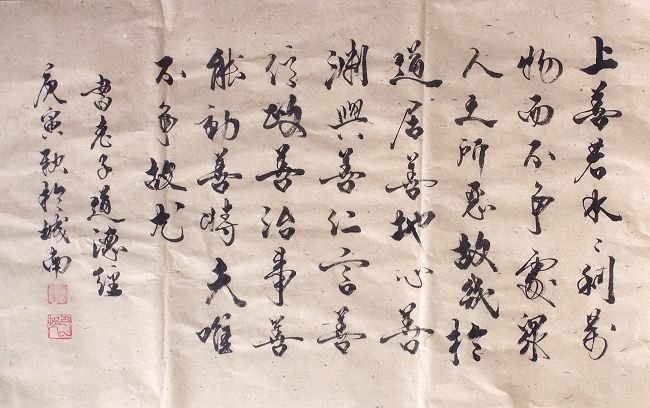 上善若水〻利万
物而不争處眾
人之所惡故幾於
道居善地心善
渊與善仁言善
信政善治事善
能動善時夫唯
不争故尤
書老子道德經
庚寅秋於城南